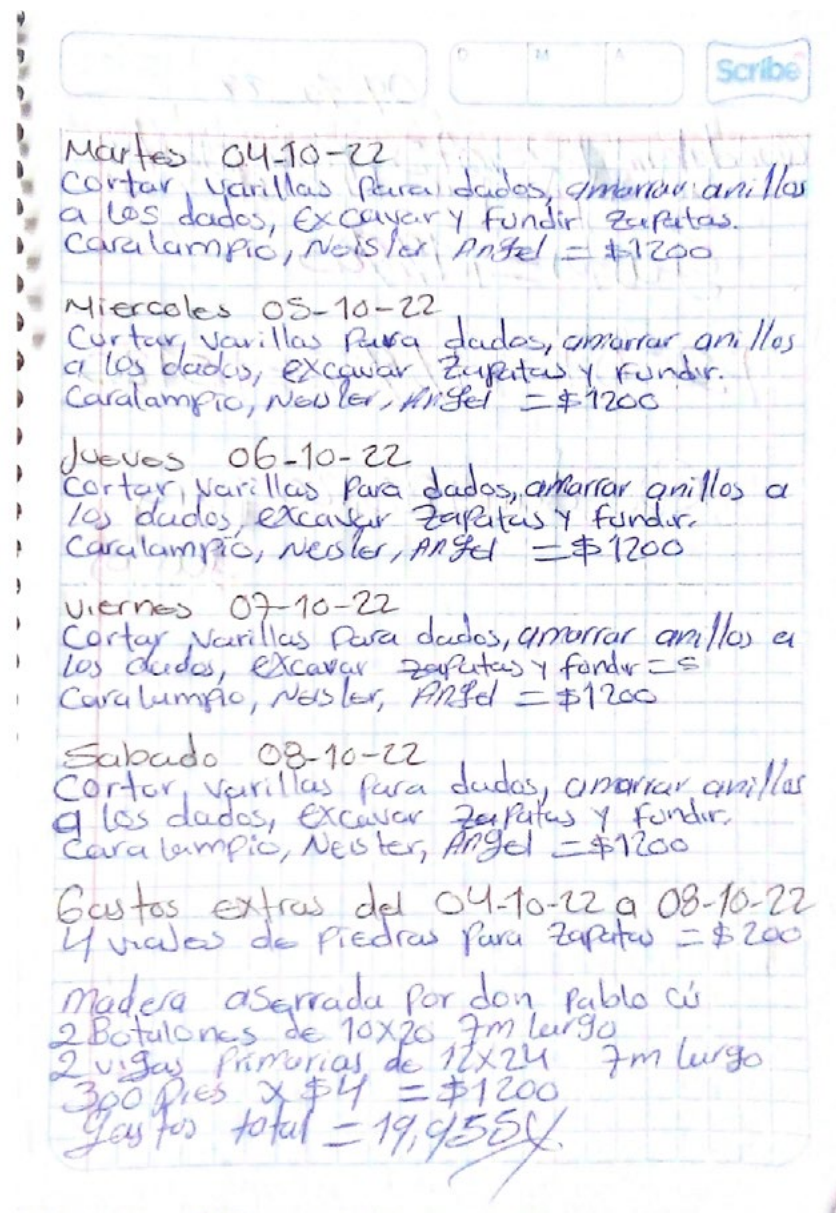 D M A
Scribe
Martes 04-10-22
Cortar varillas para dados, amarrar anillos
a los dados, excavar y fundir zapatas.
Caralampio, Neisler, Angel = $1200
Miercoles 05-10-22
Cortar varillas para dados, amarrar anillos
a los dados, excavar zapatas y fundir.
Caralampio, Neisler, Angel = $1200
Jueves 06-10-22
Cortar varillas para dados, amarrar anillos a
los dados, excavar zapatas y fundir.
Caralampio, Neisler, Angel = $1200
Viernes 07-10-22
Cortar varillas para dados, amarrar anillos a
los dados, excavar zapatas y fundir =
Caralampio, Neisler, Angel = $1200
Sabado 08-10-22
Cortar varillas para dados, amarrar anillos
a los dados, excavar zapatas y fundir.
Caralampio, Neisler, Angel = $1200
Gastos extras del 04-10-22 a 08-10-22
4 viajes de piedras para zapatas = $200
Madera aserrada por don Pablo Cú
2 Botalones de 10x20 7m largo
2 vigas primarias de 12x24 7m largo
300 pies x $4 = $1200
Gastos total =